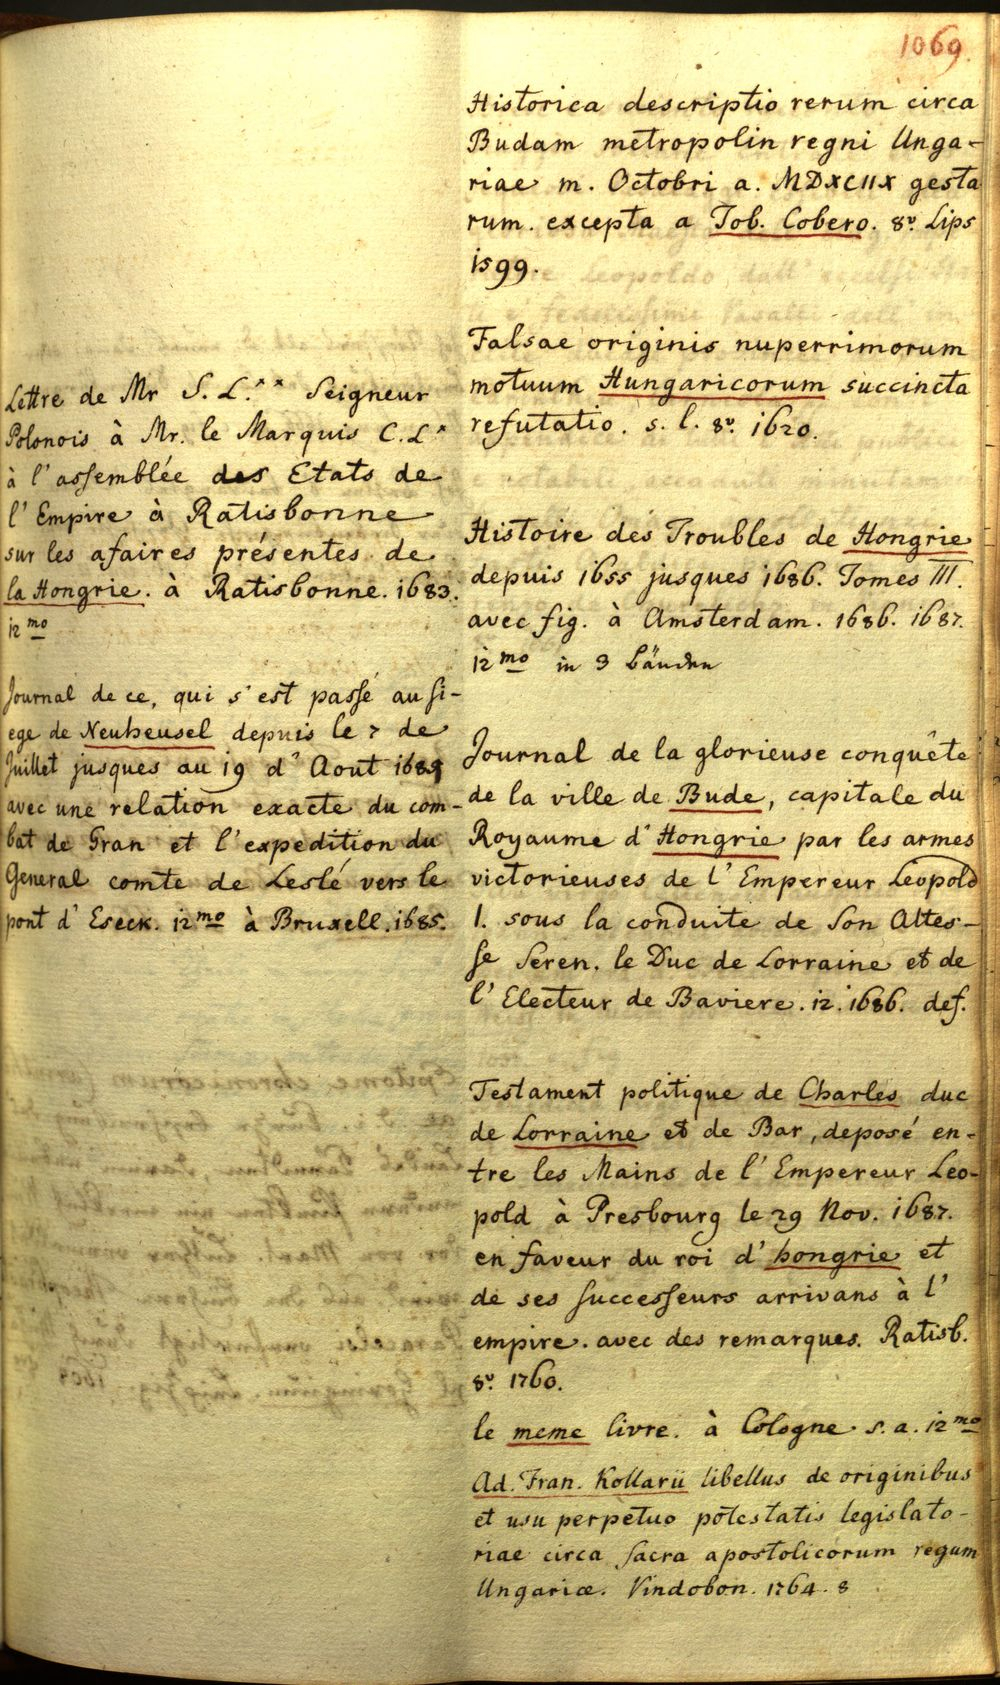 1069.
Lettre de Mr S. L.** Seigneur
Polonois à Mr. le Marquis C. L*
à l'assemblée des Etats de
l'Empire à Ratisbonne
sur les afaires présentes de
la Hongrie. à Ratisbonne. 1683.
12mo
Journal de ce, qui s'est passé au si-
ege de Neuheusel depuis le 7 de
Juillet jusques au 19 d'Aout 1685
avec une relation exacte du com-
bat de Gran et l'expedition du
General comte de Leslé vers le
pont d'Eseck. 12mo à Bruxell. 1685.
Historica descriptio rerum circa
Budam metropolin regni Unga-
riae m. Octobri a. MDXCIIX gesta
rum. excepta a Tob. Cobero. 8v. Lips
1599.
Falsae originis nuperrimorum
motuum Hungaricorum succincta
refutatio. s. l. 8v. 1620.
Histoire des Troubles de Hongrie
depuis 1655 jusques 1686. Tomes III.
avec fig. à Amsterdam. 1686. 1687.
12mo in 3 Bänden
Journal de la glorieuse conquête
de la ville de Bude, capitale du
Royaume d'Hongrie par les armes
victorieuses de l'Empereur Leopold
I. sous la conduite de Son Altes-
se Seren. le Duc de Lorraine et de
l'Electeur de Baviere. 12. 1686. def.
Testament politique de Charles duc
de Lorraine et de Bar, deposé en-
tre les Mains de l'Empereur Leo-
pold à Presbourg le 29 Nov. 1687.
en faveur du roi d'hongrie et
de ses successeurs arrivans à l'
empire. avec des remarques. Ratisb.
8v. 1760.
le meme livre. à Cologne s. a. 12mo
Ad. Fran. Kollarii libellus de originibus
et usu perpetuo potestatis legislato-
riae circa sacra apostolicorum regum
Ungariæ. Vindobon. 1764. 8